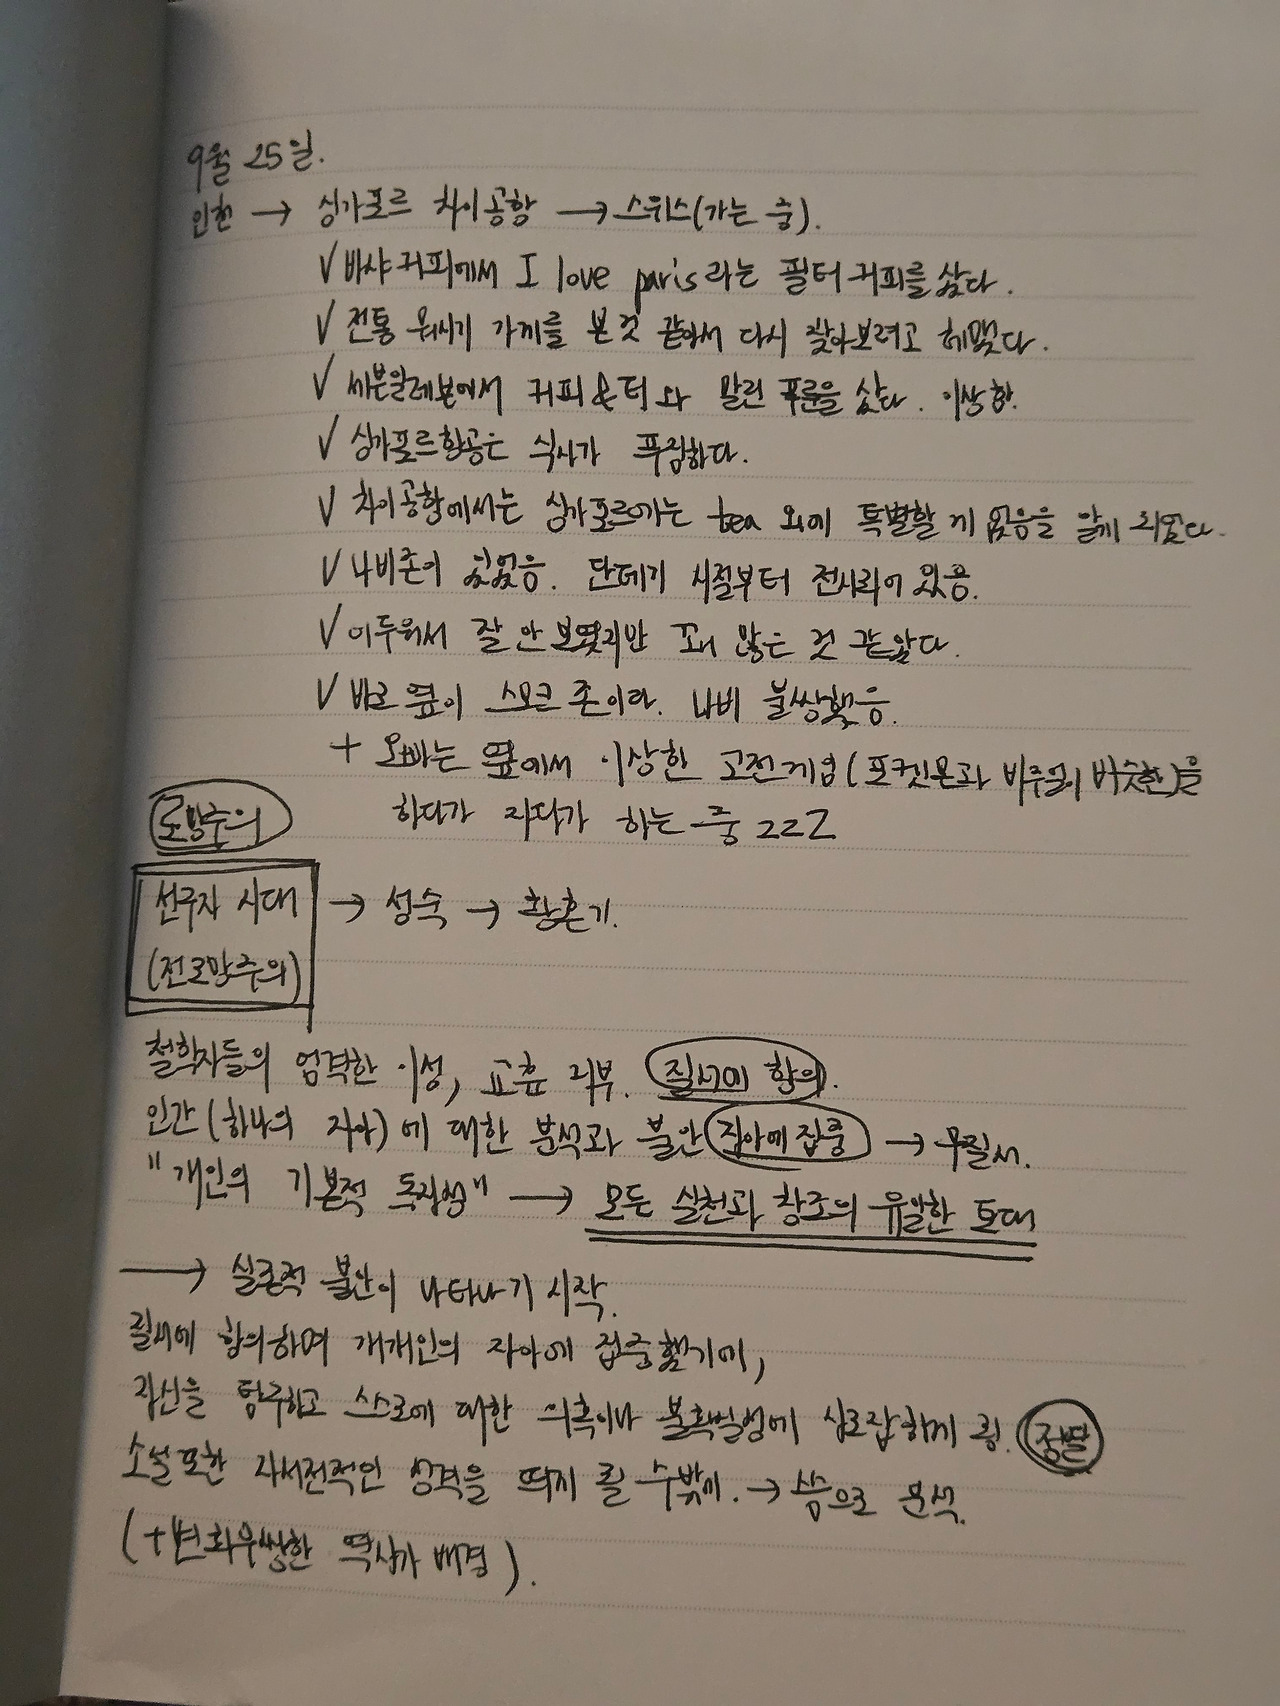 9월 25일.
인천 → 싱가포르 차이공항 → 스위스(가는 중).
✓ 바샤커피에서 I love paris라는 필터커피를 샀다.
✓ 전통 가게를 본 것 같아서 다시 찾아보려고 헤맸다.
✓ 세븐일레븐에서 커피&티와 말린 푸룬을 샀다. 이상함.
✓ 싱가포르항공은 식사가 푸짐하다.
✓ 차이공항에서는 싱가포르에는 tea 외에 특별할 게 없음을 알게 되었다.
✓ 나비존이 있었음. 단데기 시절부터 전시되어 있음.
✓ 어두워서 잘 안 보였지만 꽤 많은 것 같았다.
✓ 바로 옆이 스모크 존이라. 나비 불쌍했음.
+ 오빠는 옆에서 이상한 고전게임(포켓몬과 비주얼이 비슷한)을
하다가 자다가 하는 중 zzZ
로망주의
선구자 시대 → 성숙 → 황혼기.
(전로망주의)
철학자들의 엄격한 이성, 교훈 거부. 질서에 항의.
인간(하나의 자아)에 대한 분석과 불안 자아에 집중 → 무질서.
"개인의 기본적 독자성" → 모든 실천과 창조의 유일한 토대
→ 실존적 불안이 나타나기 시작.
질서에 항의하며 개개인의 자아에 집중했기에,
자신을 탐구하고 스스로에 대한 의혹이나 불확실성에 사로잡히게 됨.
소설 또한 자서전적인 성격을 띄지 될 수밖에. → 씀으로 분석.
(+변화무쌍한 역사가 배경).